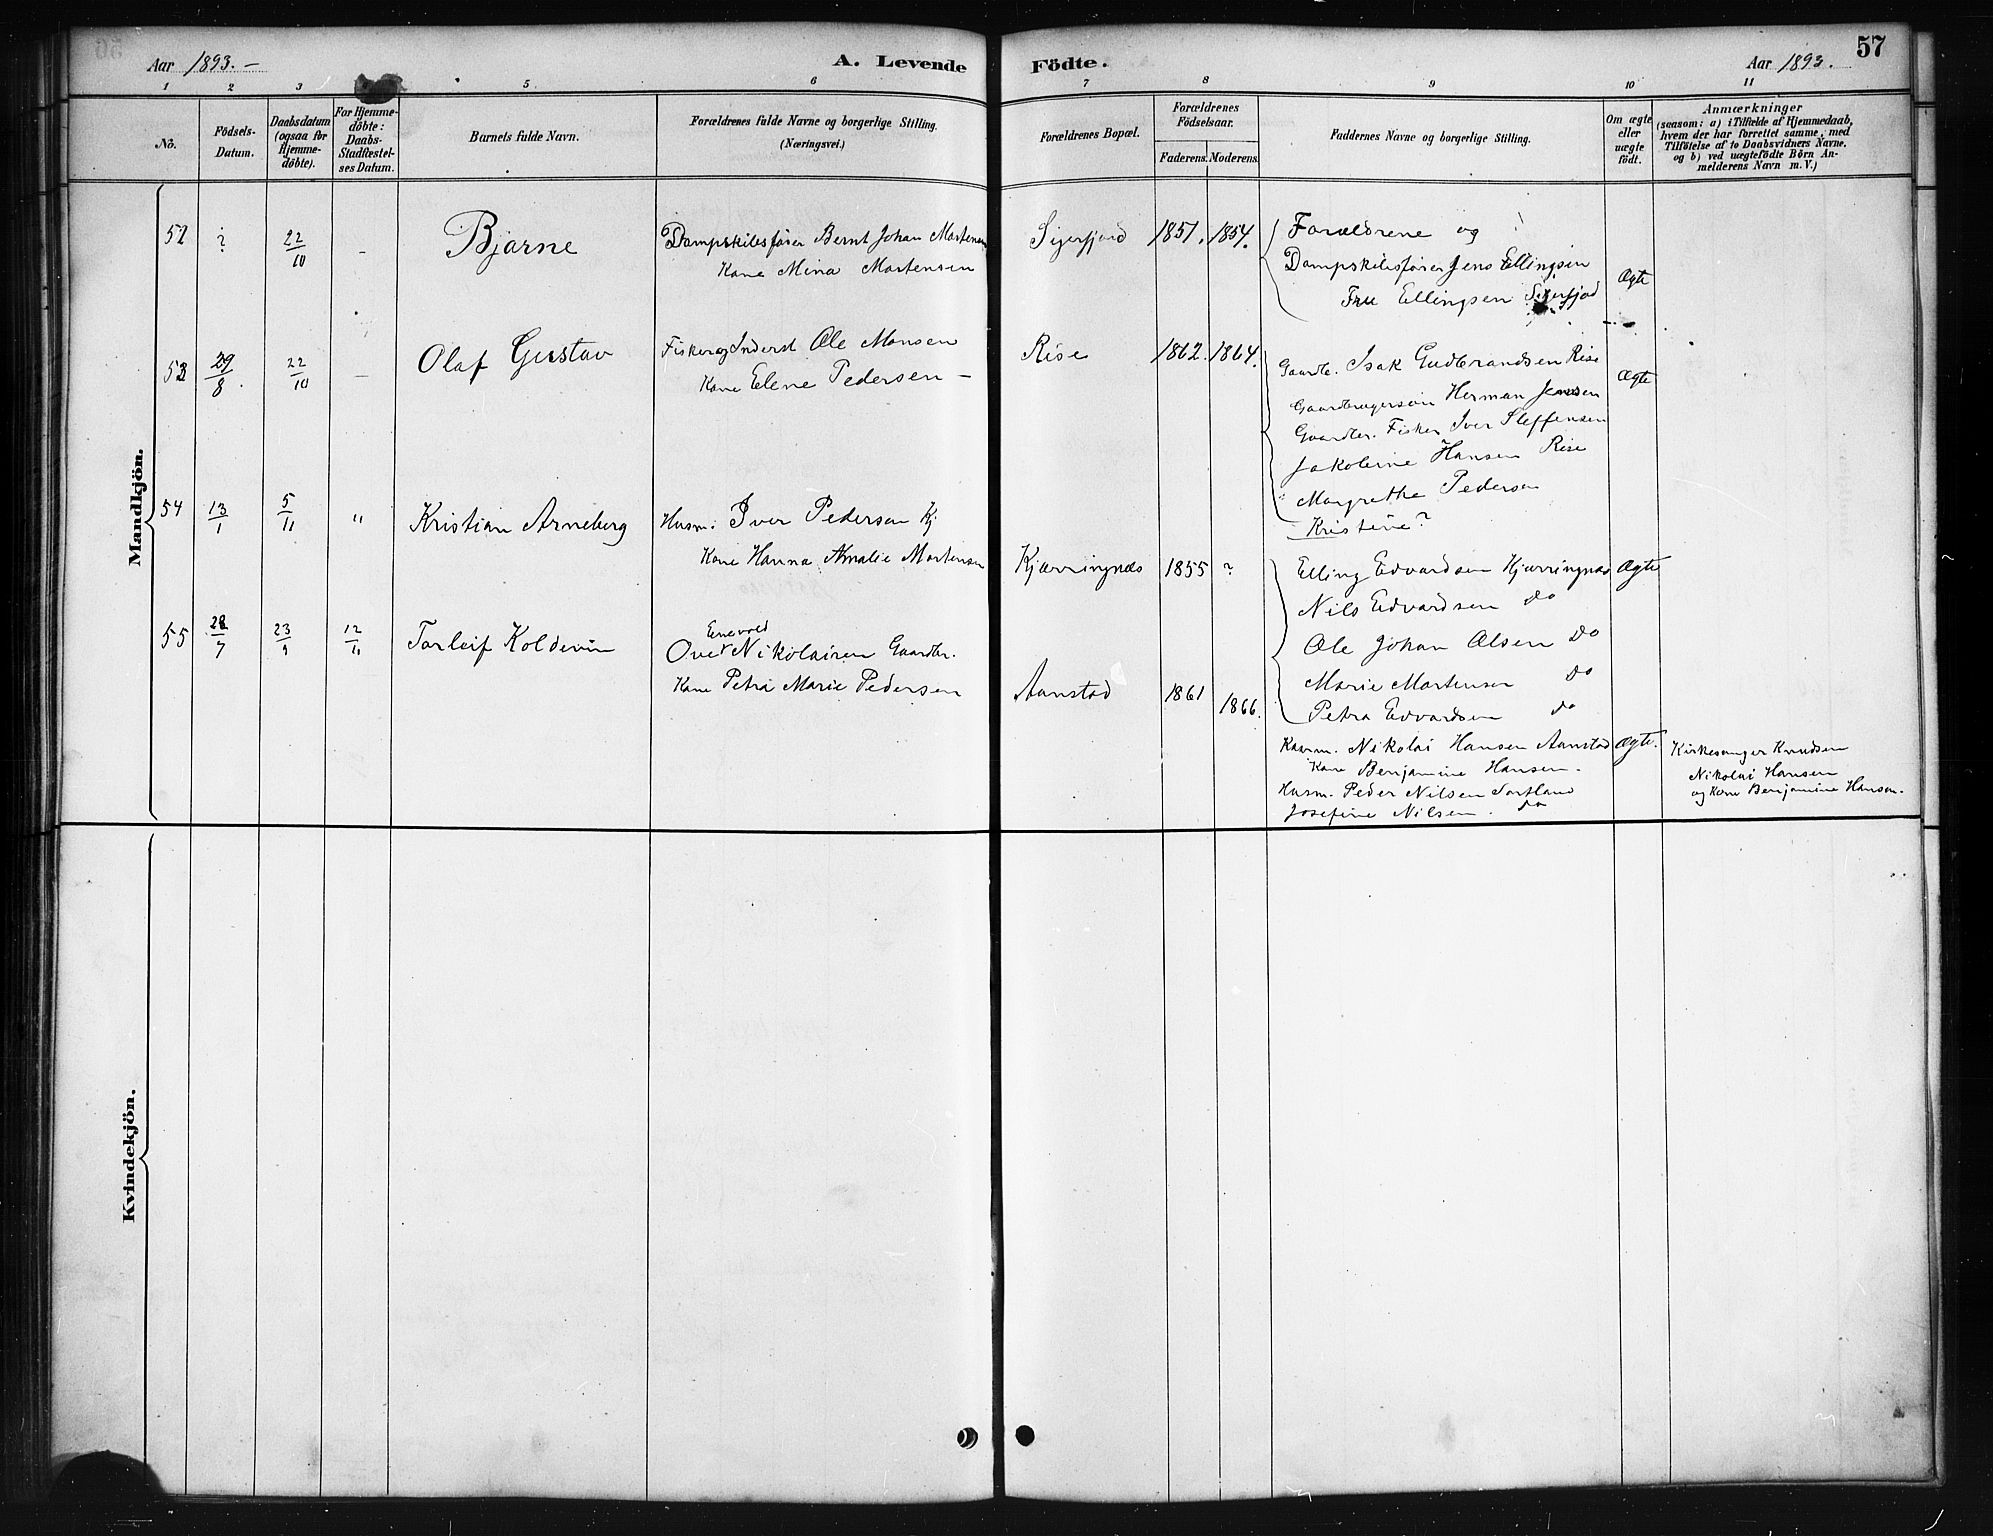 Aar 1893. –
A. Levende
Födte.
Aar 1893.
57
1 2 3 5 6 7 8 9 10 11
No.
Födsels-Datum.
Daabsdatum (ogsaa for Hjemme-döbte).
For Hjemme-döbte: Daabs-Stadfæstel-ses Datum.
Barnets fulde Navn.
Forældrenes fulde Navne og borgerlige Stilling.
(Næringsvei.)
Forældrenes Bopæl.
Forældrenes Födselsaar.
Faderens. Moderens.
Faddernes Navne og borgerlige Stilling.
Om ægte eller uægte födt.
Anmærkninger
(saasom: a) i Tilfælde af Hjemmedaab,
hvem der har forrettet samme, med
Tilföielse af to Daabsvidners Navne.
og b) ved uægtefödte Börn An-
melderens Navn m. V.)
Mandkjön.
52 ? 22/10 – Bjarne
Dampskibsfører Bernt Johan Mortensen
Kone Mina Mortensen
Sigerfjord 1851. 1854.
Forældrene og
Dampskibsfører Jens Ellingsen
Fru Ellingsen Sigerfjod
Ægte
53 29/8 22/10 – Olaf Gustav
Fisker og Inderst Ole Monsen
Kone Elene Pedersen –
Rise 1862. 1864.
Gaardbr. Isak Gudbrandsen Rise
Gaardbrugersøn Herman Jensen
Gaardbr. Fisker Iver Steffensen
Jakobine Hansen Rise
Margrethe Pedersen
Kristine?
Ægte
54 13/1 5/11 " Kristian Arneberg
Husm. Iver Pedersen Kj
Kone Hanna Amalie Mortensen
Kjærringnæs 1855 ?
Elling Edvardsen Kjærringnæs
Nils Edvardsen do
Ole Johan Olsen do
Marie Mortensen do
Petra Edvardsen do
Ægte
55 28/7 23/9 12/11 Torleif Koldevin
Enevold
Ove Nikolaisen Gaardbr.
Kone Petra Marie Pedersen
Aanstad 1861 1866.
Kaarm. Nikolai Hansen Aanstad
Kone Benjamine Hansen.
Husm. Peder Nilsen Sortland
Josefine Nilsen. do
Ægte.
Kirkesanger Knudsen
Nikolai Hansen
og Kone Benjamine Hansen.
Kvindekjön.